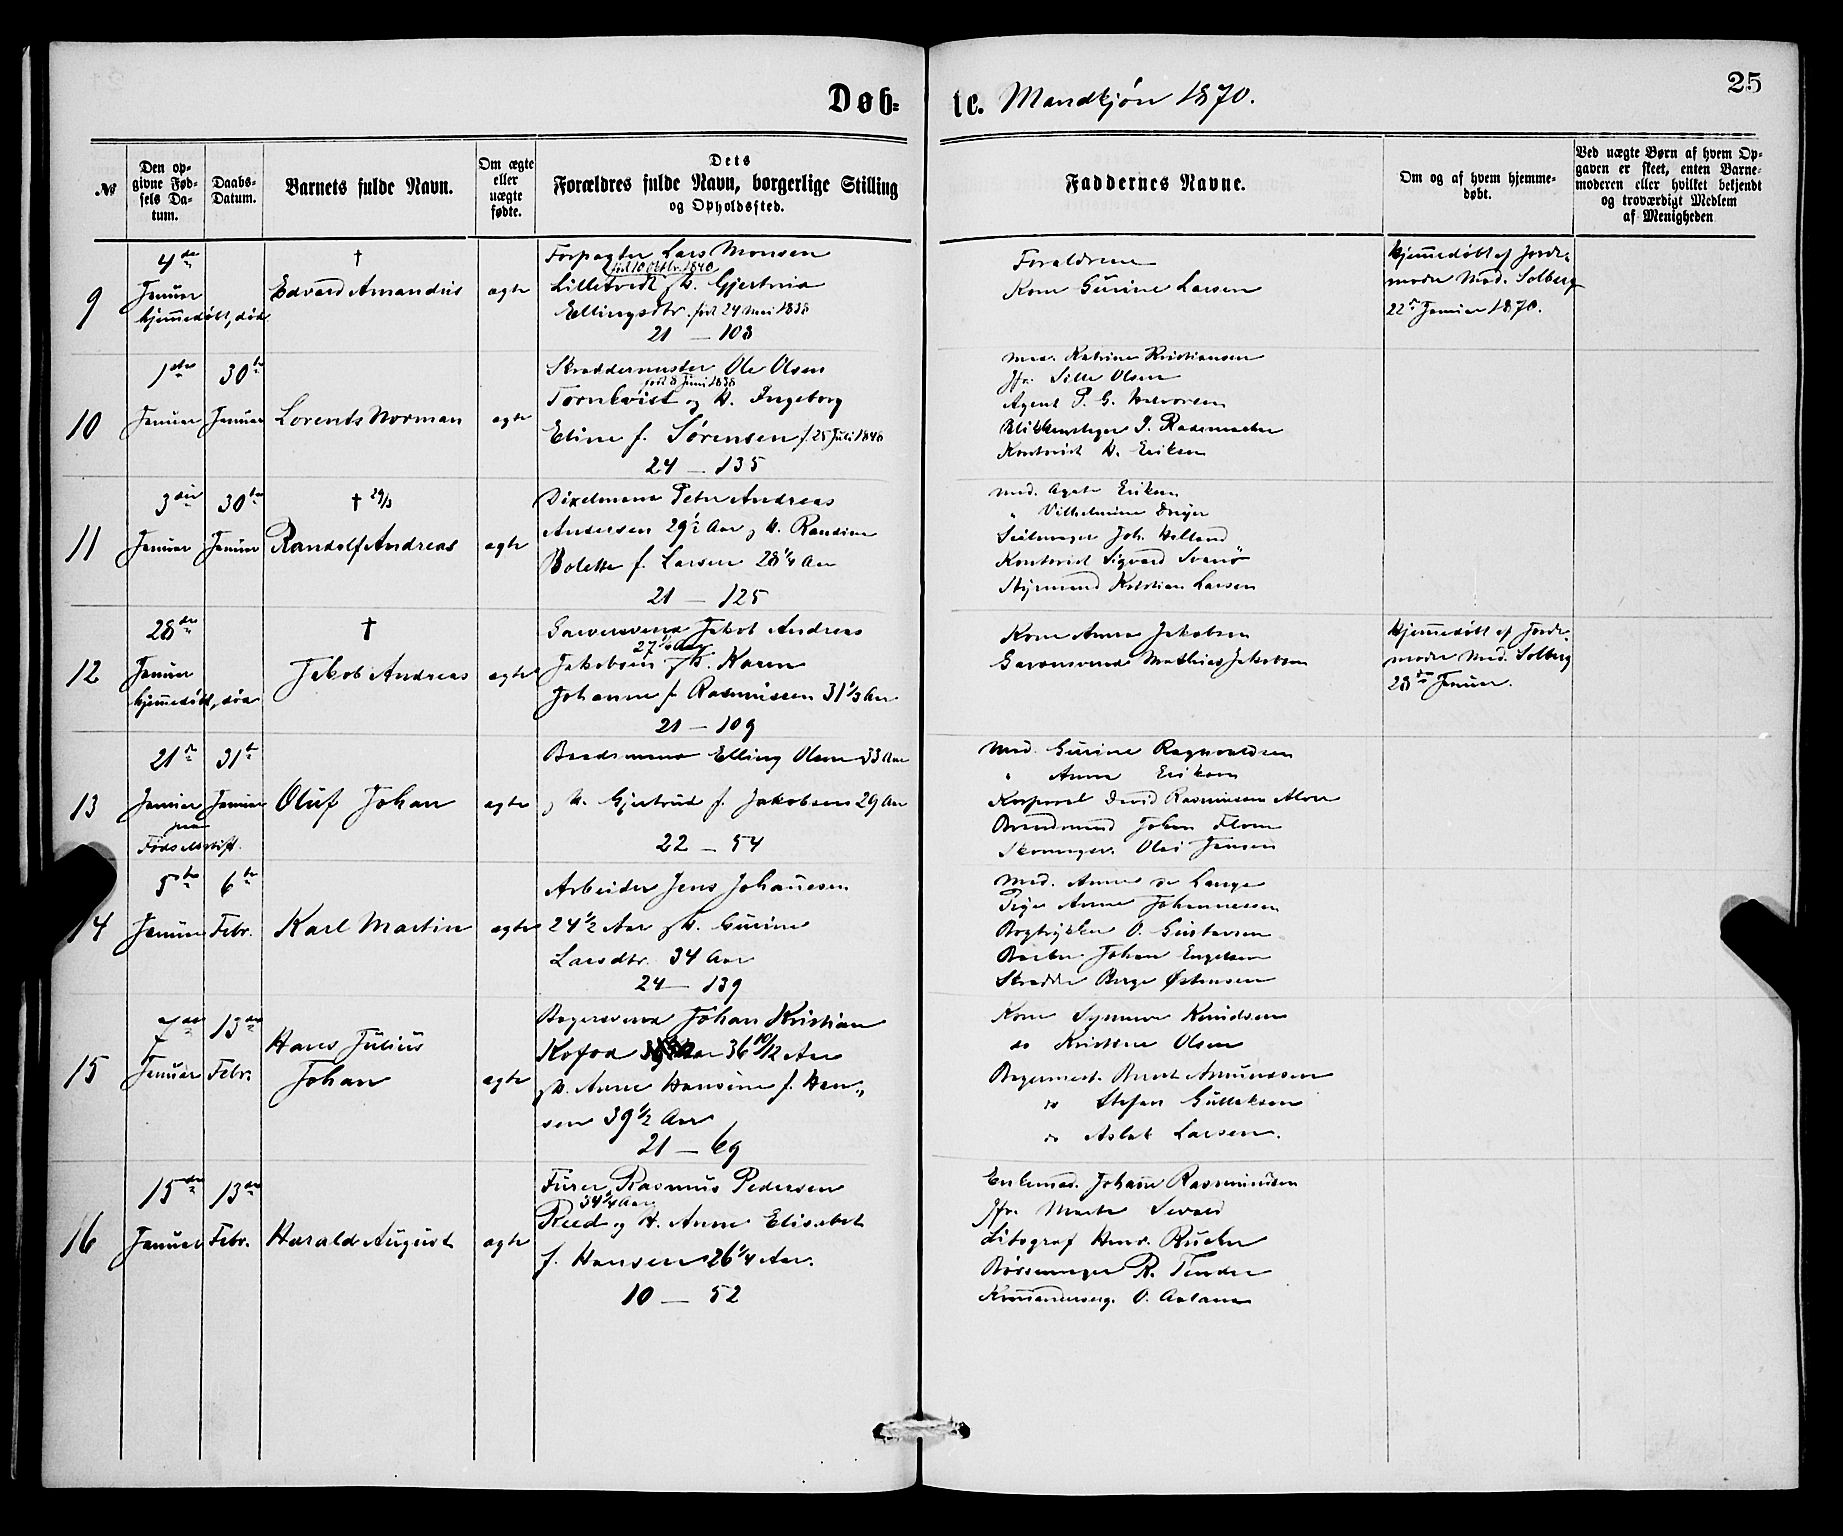 25
Døb= te. Mandkjøn 1870.
№
Den op-
givne Fød-
sels Da-
tum.
Daabs-
Datum.
Barnets fulde Navn.
Om ægte
eller
uægte
fødte.
Dets
Forældres fulde Navn, borgerlige Stilling
og Opholdssted.
Faddernes Navne.
Om og af hvem hjemme-
døbt.
Ved uægte Børn af hvem Op-
gaven er skeet, enten Barne-
moderen eller hvilket bekjendt
og troværdigt Medlem
af Menigheden
9
4de
Januar
hjemmedøbt, død
†
Edvard Amandus
ægte
Forpagter Lars Monsen
født 10 Octbr. 1840
Lilletvedt og H. Gjertrud
Ellingsdtr. født 24 Mai 1838
21 — 108
Forældrene
Kone Gurine Larsen
hjemmedøbt af Jorde-
moder Mad. Solberg
22de Januar 1870.
10
1ste
Januar
30te
Januar
Lorents Norman
ægte
Skræddermester Ole Olsen
født 8 Juni 1838
Tornkvist og H. Ingeborg
Eline f. Sørensen f. 25 Juli 1848
24 — 135
Mad. Katrine Kristiansen
Jfr. Sille Olsen
Agent P. G. Halvorsen
Blikkenslager J. Rademacher
Kontorist H. Eriksen
11
3die
Januar
30te
Januar
† 29/3
Randolf Andreas
ægte
Dixelmand Peter Andreas
Andersen 29 1/2 Aar og H. Randine
Bolette f. Larsen 28 1/4 Aar
21 — 125
Mad. Agate Eriksen
" Vilhelmine Dreyer
Seilmager Joh. Helland
Kontorist Sigvard Svanø
Styrmand Kristian Larsen
12
28de
Januar
hjemmedøbt, død
†
Jakob Andreas
ægte
Garversvend Jakob Andreas
27 1/2 Aar
Jakobsen og H. Karen
Johanne f. Rasmussen 31 1/3 Aar
21 — 109
Kone Anna Jakobsen
Garversvend Mathias Jakobsen
hjemmedøbt af Jorde-
moder Mad. Solberg
28de Januar.
13
21de
Januar
paa
Fødselsstift.
31te
Januar
Oluf Johan
ægte
Elling Olsen 33 Aar
og H. Gjertrud f. Jakobsen 29 Aar
22 — 54
Mad. Gurine Ragnvaldsen
" Anna Eriksen
Korporal David Rasmussen
Johan
Skomager. Olai Jensen
14
5te
Januar
6te
Febr.
Karl Martin
ægte
Arbeider Jens Johannesen
24 1/2 Aar og H. Gurine
Larsdtr. 34 Aar
24 — 139
Mad. Anna de Lange
Pige Anna Johannessen
Bogtrykker O. Gustavsen
Barber Johan Engelsen
Skrædder Børge Østensen
15
7de
Januar
13de
Febr.
Hans Julius
Johan
ægte
Bagersvend Johan Kristian
Kofod 36 10/12 Aar
og H. Anne Hansine f. Han-
sen 39 1/2 Aar
21 — 69
Kone Synneve Knudsen
do Kristine Olsen
Bagermest. Berent Amundsen
do Stefan Gulleksen
do Aslak Larsen.
16
15de
Januar
13de
Febr.
Harald August
ægte
Furer Rasmus Pedersen
34 1/4 Aar
Reed og H. Anne Elisabet
f. Hansen 26 1/4 Aar.
10 — 52
Enkemad. Johanne Rasmussen
Jfr. Marta
Litograf Henr. Bucher
Børsemager R. Tender
O. Aaland